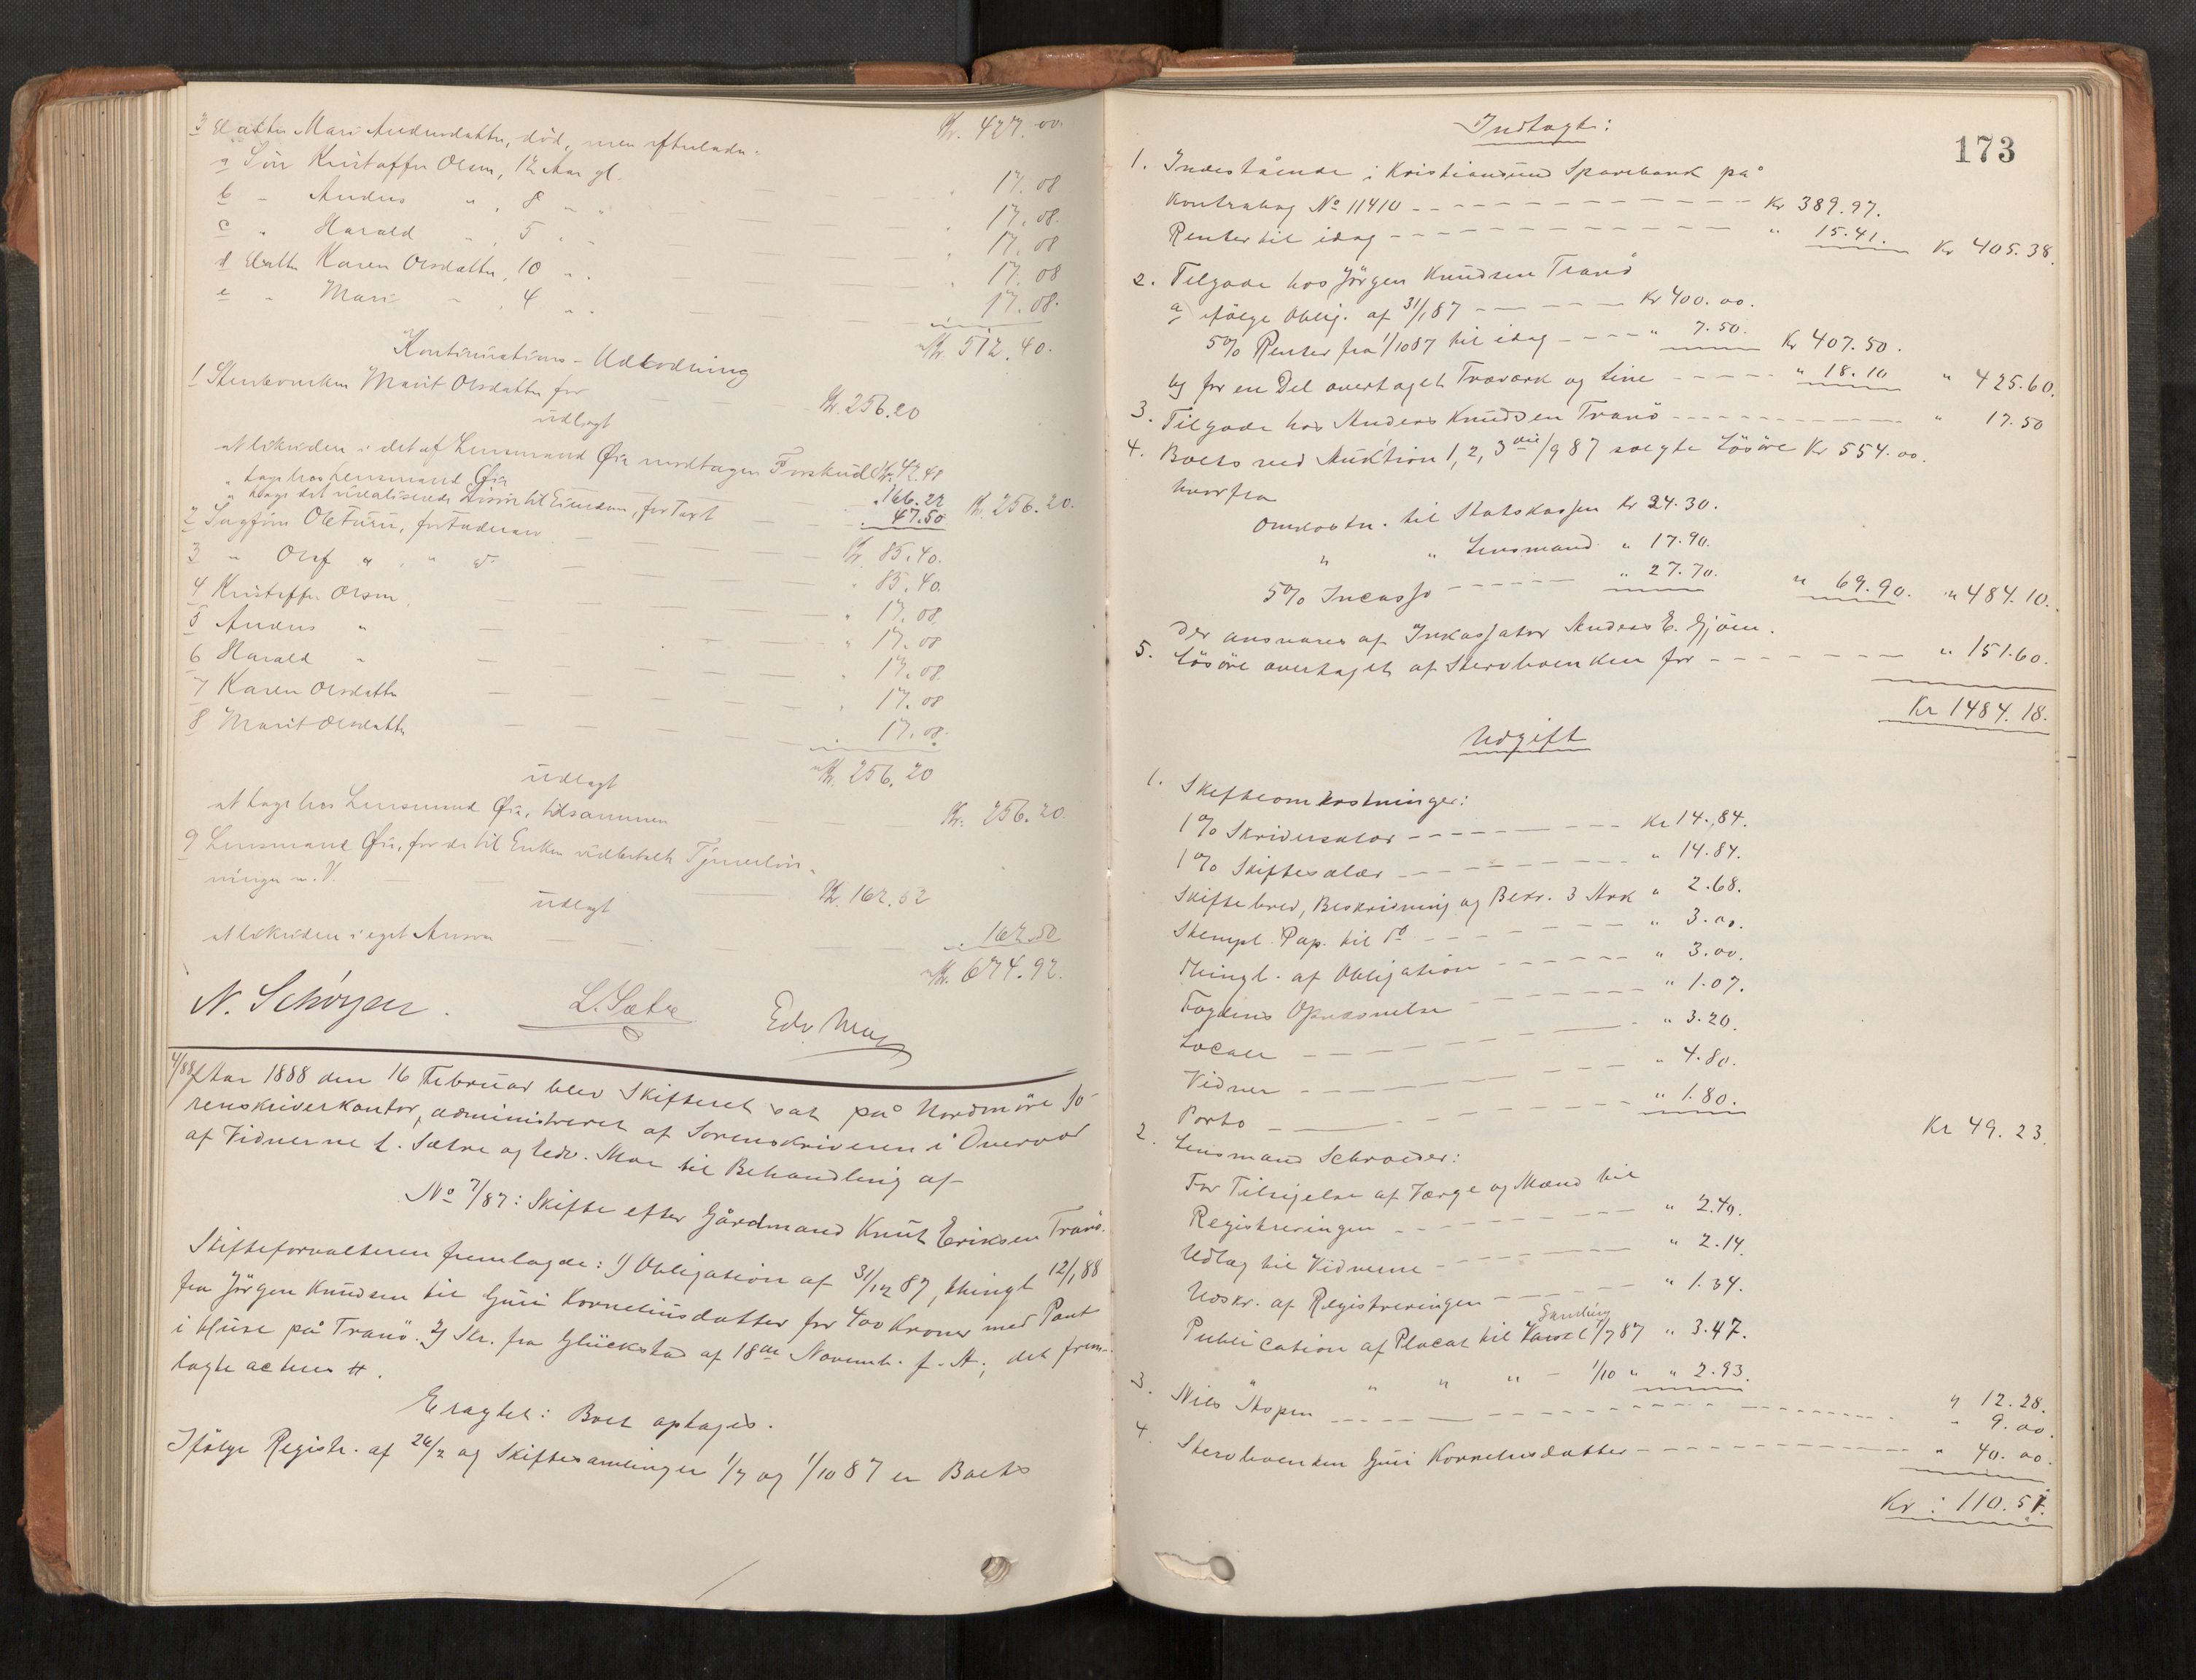 3 Datter Mari Andersdatter, död, men efterladte Kr. 427.00.
a Sön Kristoffer Olsen, 12 Aar gl. " 17.08
b - Anders " , 8 " " 17.08.
c " Harald " , 5 " " 17.08
d Datter Karen Olsdatter, 10 " " 17.08
e " Mari " , 4 " " 17.08.
Kr. 512.40.
Kontinuations-Udlodning
1 Stervboenken Marit Olsdatter for Kr. 256.20
udlagt
at likvidere i det af Lensmand Øie modtagen Forskud Kr. 42.48
" tage hos Lensmand Øie " 166.22
" tage det urealiserede til Eiendom, for Taxt " 47.50 Kr. 256.20.
2 Sagförer O. Sturu, for Faderarv Kr. 85.40.
3 " Oluf " , " do " 85.40.
4 Kristoffer Olsen " 17.08.
5 Anders " " 17.08
6 Harald " " 17.08.
7 Karen Olsdatter " 17.08
8 Marit Olsdatter 17.08.
Kr. 256.20
udlagt
at tage hos Lensmand Øie, tilsammen Kr. 256.20.
9 Lensmand Øie, for de til Enken udbetalte Tjenerlön-
ninger m.V. Kr. 162.52
udlagt
at likvidere i eget Ansvar " 162.52
Kr. 674.92.
N. Schöyen. L. Sætre Edv. Moe
4/88 Aar 1888 den 16 Februar blev Skifteret sat på Nordmöre So-
renskriverkontor, administreret af Sorenskriveren i Overvær
af Vidnerne L. Sætre og Edv. Moe til Behandling af
No 7/87: Skifte efter Gårdmand Knut Eriksen Tranö.
Skifteforvalteren fremlagde: 1) Obligation af 31/12 87, thingl 12/1 88
fra Jörgen Knudsen til Guri Korneliusdatter for 400 Kroner med Pant
i Huse på Tranö. 2) Skr. fra Glückstad af 18de Novemb. f. A.; det frem-
lagte acteres #.
Eragtet: Boet optages.
Ifölge Registr. af 26/2 og Skiftesamlinger 1/7 og 1/10 87 er Boets
173
Indtægt:
1. Indestående i Kristiansund Sparebank på
Kontrabog No 11410 Kr 389.97.
Renter til idag " 15.41. Kr 405.38.
2. Tilgode hos Jörgen Knudsen Tranö
a) ifölge Oblig. af 31/1 87 Kr 400.00.
5% Renter fra 1/10 87 til idag " 7.50. Kr 407.50.
b) for en Del overtaget Trævark og Line " 18.10 " 425.60.
3. Tilgode hos Anders Knudsen Tranö " 17.50
4. Boets ved Auktion 1, 2, 3die/9 87 solgte Lösöre Kr 554.00.
hvorfra
Omkostn. til Statskassen Kr 24.30.
" " Lensmand " 17.90.
5% Incasso " 27.70. " 69.90. " 484.10.
der ansvares af Inkassator Anders E. Gjöen.
5. Lösöre overtaget af Stervboenken for " 151.60.
Kr 1484.18.
Udgift
1. Skifteomkostninger:
1% Skriversalær Kr 14.84.
1% Skiftesalær " 14.84.
Skiftebrev, Beskrivning og Bekr. 3 Ark " 2.68.
Stempl. Pap. til do " 3.00.
Thingl. af Obligation " 3.00.
Fogdens Opnævnelse " 1.07.
Locale " 3.20.
Vidner " 4.80.
Porto " 1.80. Kr 49.23.
2. Lensmand Schrøder:
For Tilsigelse af Værge og Mænd til
Registreringen " 2.40.
Udlæg til Vidnerne " 2.14.
Udskr. af Registreringen " 1.34.
Publication af Placat til Samling 1/7 87 " 3.47.
" " " - 1/10 " " 2.93. " 12.28.
3. Nils Aspen " 9.00.
4. Stervboenken Guri Korneliusdatter " 40.00.
Kr: 110.51.